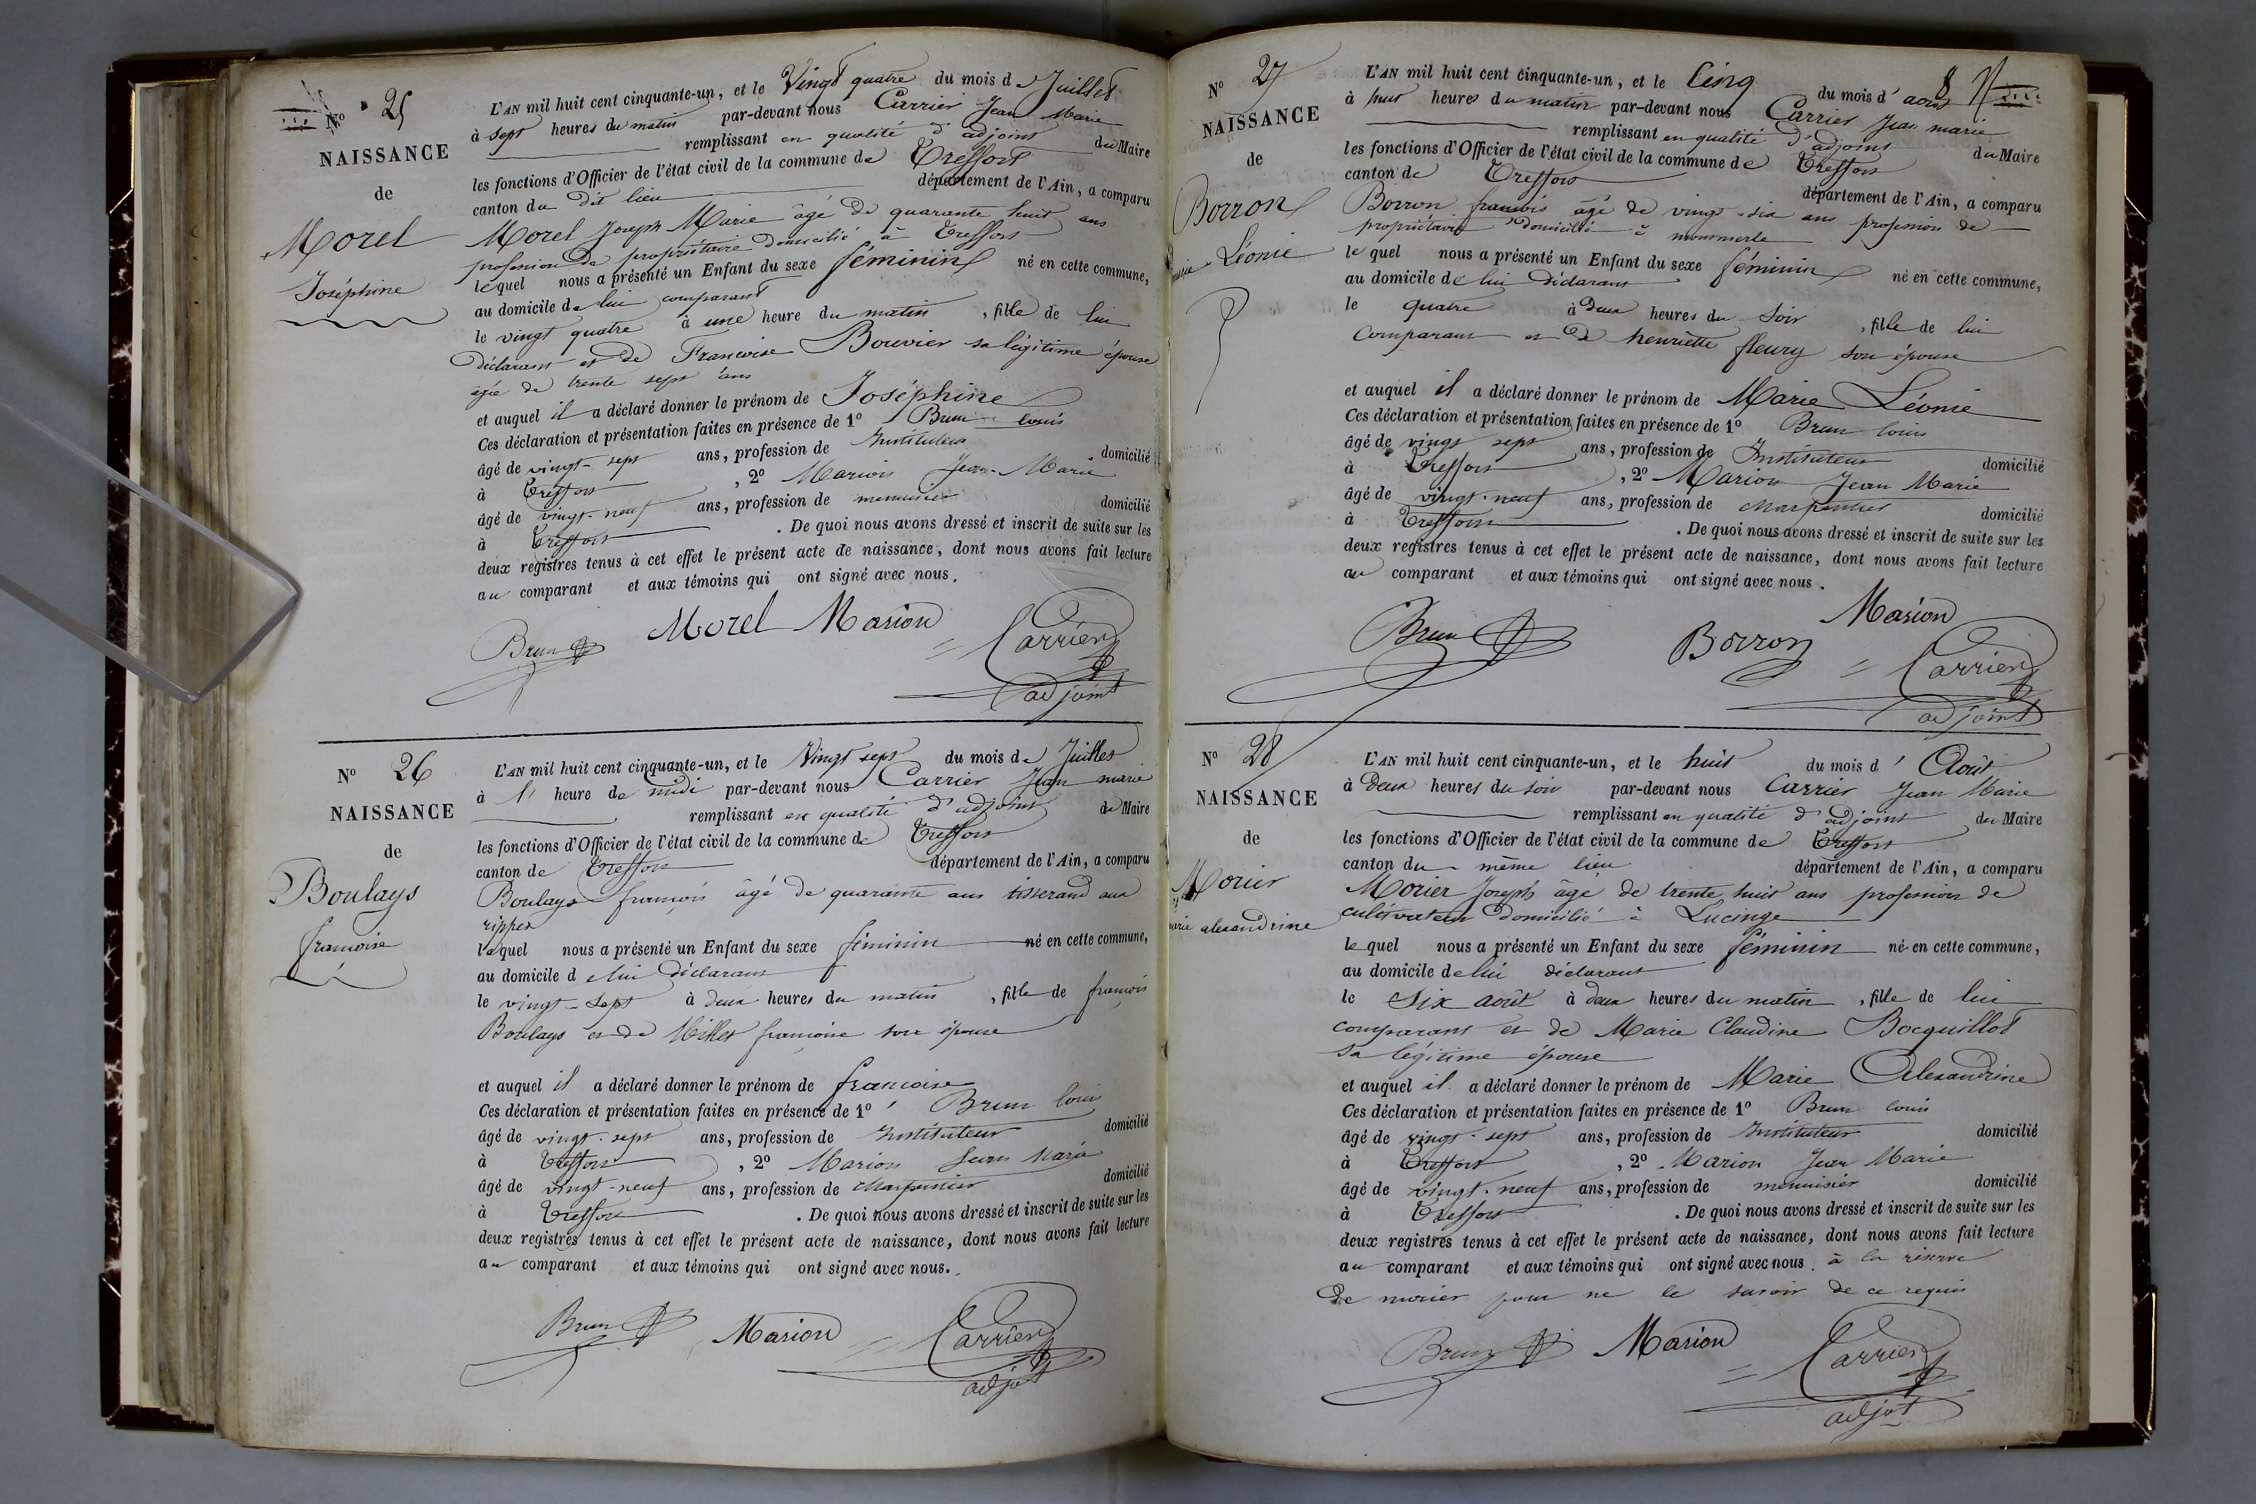 N° 25
NAISSANCE
de
Morel
Joséphine
L'AN mil huit cent cinquante-un, et le Vingt quatre du mois de Juillet
à sept heures du matin par-devant nous Carrier Jean Marie
remplissant en qualité d'adjoint du Maire
les fonctions d'Officier de l'état civil de la commune de Treffort
canton du dit lieu département de l'Ain, a comparu
Morel Joseph Marie âgé de quarante huit ans
profession de propriétaire domicilié à Treffort
lequel nous a présenté un Enfant du sexe féminin né en cette commune,
au domicile de lui comparant
le vingt quatre à une heure du matin, fille de lui
déclarant et de Francoise Bouvier sa légitime épouse
agée de trente sept ans
et auquel il a déclaré donner le prénom de Joséphine
Ces déclaration et présentation faites en présence de 1° Brun louis
âgé de vingt-sept ans, profession de Instituteur domicilié
à Treffort, 2° Marion Jean-Marie
âgé de vingt-neuf ans, profession de menuisier domicilié
à Treffort. De quoi nous avons dressé et inscrit de suite sur les
deux registres tenus à cet effet le présent acte de naissance, dont nous avons fait lecture
au comparant et aux témoins qui ont signé avec nous.
Brun Morel Marion Carrier
adjoint
N° 26
NAISSANCE
de
Boulays
francoise
L'AN mil huit cent cinquante-un, et le Vingt sept du mois de Juillet
à l' heure de midi par-devant nous Carrier Jean marie
remplissant en qualité d'adjoint du Maire
les fonctions d'Officier de l'état civil de la commune de Treffort
canton de Treffort département de l'Ain, a comparu
Boulays françois âgé de quarante ans tisserand aux
rippes
lequel nous a présenté un Enfant du sexe féminin né en cette commune,
au domicile de lui déclarant
le vingt-sept à deux heures du matin, fille de françois
Boulays et de Millet francoise son épouse
et auquel il a déclaré donner le prénom de francoise
Ces déclaration et présentation faites en présence de 1° Brun louis
âgé de vingt-sept ans, profession de Instituteur domicilié
à Treffort, 2° Marion Jean Marie
âgé de vingt-neuf ans, profession de charpentier domicilié
à Treffort. De quoi nous avons dressé et inscrit de suite sur les
deux registres tenus à cet effet le présent acte de naissance, dont nous avons fait lecture
au comparant et aux témoins qui ont signé avec nous.
Brun Marion Carrier
adjot
8
N° 27
NAISSANCE
de
Borron
marie Léonie
L'AN mil huit cent cinquante-un, et le Cinq du mois d'aout
à huit heures du matin par-devant nous Carrier Jean marie
remplissant en qualité d'adjoint du Maire
les fonctions d'Officier de l'état civil de la commune de Treffort
canton de Treffort département de l'Ain, a comparu
Borron francois âgé de vingt-six ans profession de
propriétaire domicilié à montmerle
lequel nous a présenté un Enfant du sexe féminin né en cette commune,
au domicile de lui déclarant
le quatre à deux heures du soir, fille de lui
comparant et de henriette fleury son épouse
et auquel il a déclaré donner le prénom de Marie Léonie
Ces déclaration et présentation faites en présence de 1° Brun louis
âgé de vingt sept ans, profession de Instituteur domicilié
à Treffort, 2° Marion Jean Marie
âgé de vingt-neuf ans, profession de charpentier domicilié
à Treffort. De quoi nous avons dressé et inscrit de suite sur les
deux registres tenus à cet effet le présent acte de naissance, dont nous avons fait lecture
au comparant et aux témoins qui ont signé avec nous.
Brun Borron Marion Carrier
adjoint
N° 28
NAISSANCE
de
Morier
marie alexandrine
L'AN mil huit cent cinquante-un, et le huit du mois d'Août
à deux heures du soir par-devant nous Carrier Jean Marie
remplissant en qualité d'adjoint du Maire
les fonctions d'Officier de l'état civil de la commune de Treffort
canton du même lieu département de l'Ain, a comparu
Morier Joseph âgé de trente huit ans profession de
cultivateur domicilié à Lucinge
lequel nous a présenté un Enfant du sexe féminin né en cette commune,
au domicile de lui déclarant
le Six août à deux heures du matin, fille de lui
comparant et de Marie Claudine Bocquillot
sa légitime épouse
et auquel il a déclaré donner le prénom de Marie Alexandrine
Ces déclaration et présentation faites en présence de 1° Brun louis
âgé de vingt-sept ans, profession de Instituteur domicilié
à Treffort, 2° Marion Jean Marie
âgé de vingt-neuf ans, profession de menuisier domicilié
à Treffort. De quoi nous avons dressé et inscrit de suite sur les
deux registres tenus à cet effet le présent acte de naissance, dont nous avons fait lecture
au comparant et aux témoins qui ont signé avec nous. à la réserve
de morier pour ne le savoir de ce requis
Brun Marion Carrier
adjot